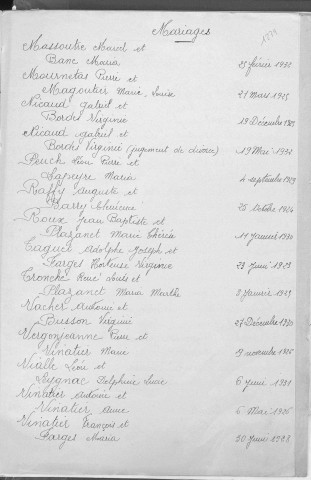 Mariages
Massoutre Marcel et
Banc Maria 25 février 1922
Mournetas Pierre et
Magoutier Marie, Louise 21 Mars 1925
Nicaud gabriel et
Bordes Virginie 19 Décembre
Nicaud gabriel et
Bordes Virginie (jugement de divorce) 19 Mai
Peuch Pierre et
Lapeyre Maria 4 septembre 1929
Raffy Auguste et
Barry 25 Octobre 1924
Roux Jean Baptiste et
Plazanet Marie Thérèse 11 Janvier 1930
Tagué Adolphe Joseph et
Farges Hortense Virginie 23 Juin 1923
Tronche René Louis et
Plazanet Maria Marthe 8 Janvier 1929
Vacher Antoine et
Buisson Virginie 27 Décembre 1920
Vergonjeanne Pierre et
Vinatier Marie 9 novembre 1925
Vialle Léon et
Lygnac Delphine Lucie 6 Juin 1931
Vinatier Antoine et
Vinatier Anna 6 Mai 1926
Vinatier François et
Farges Maria 30 Juin 1928